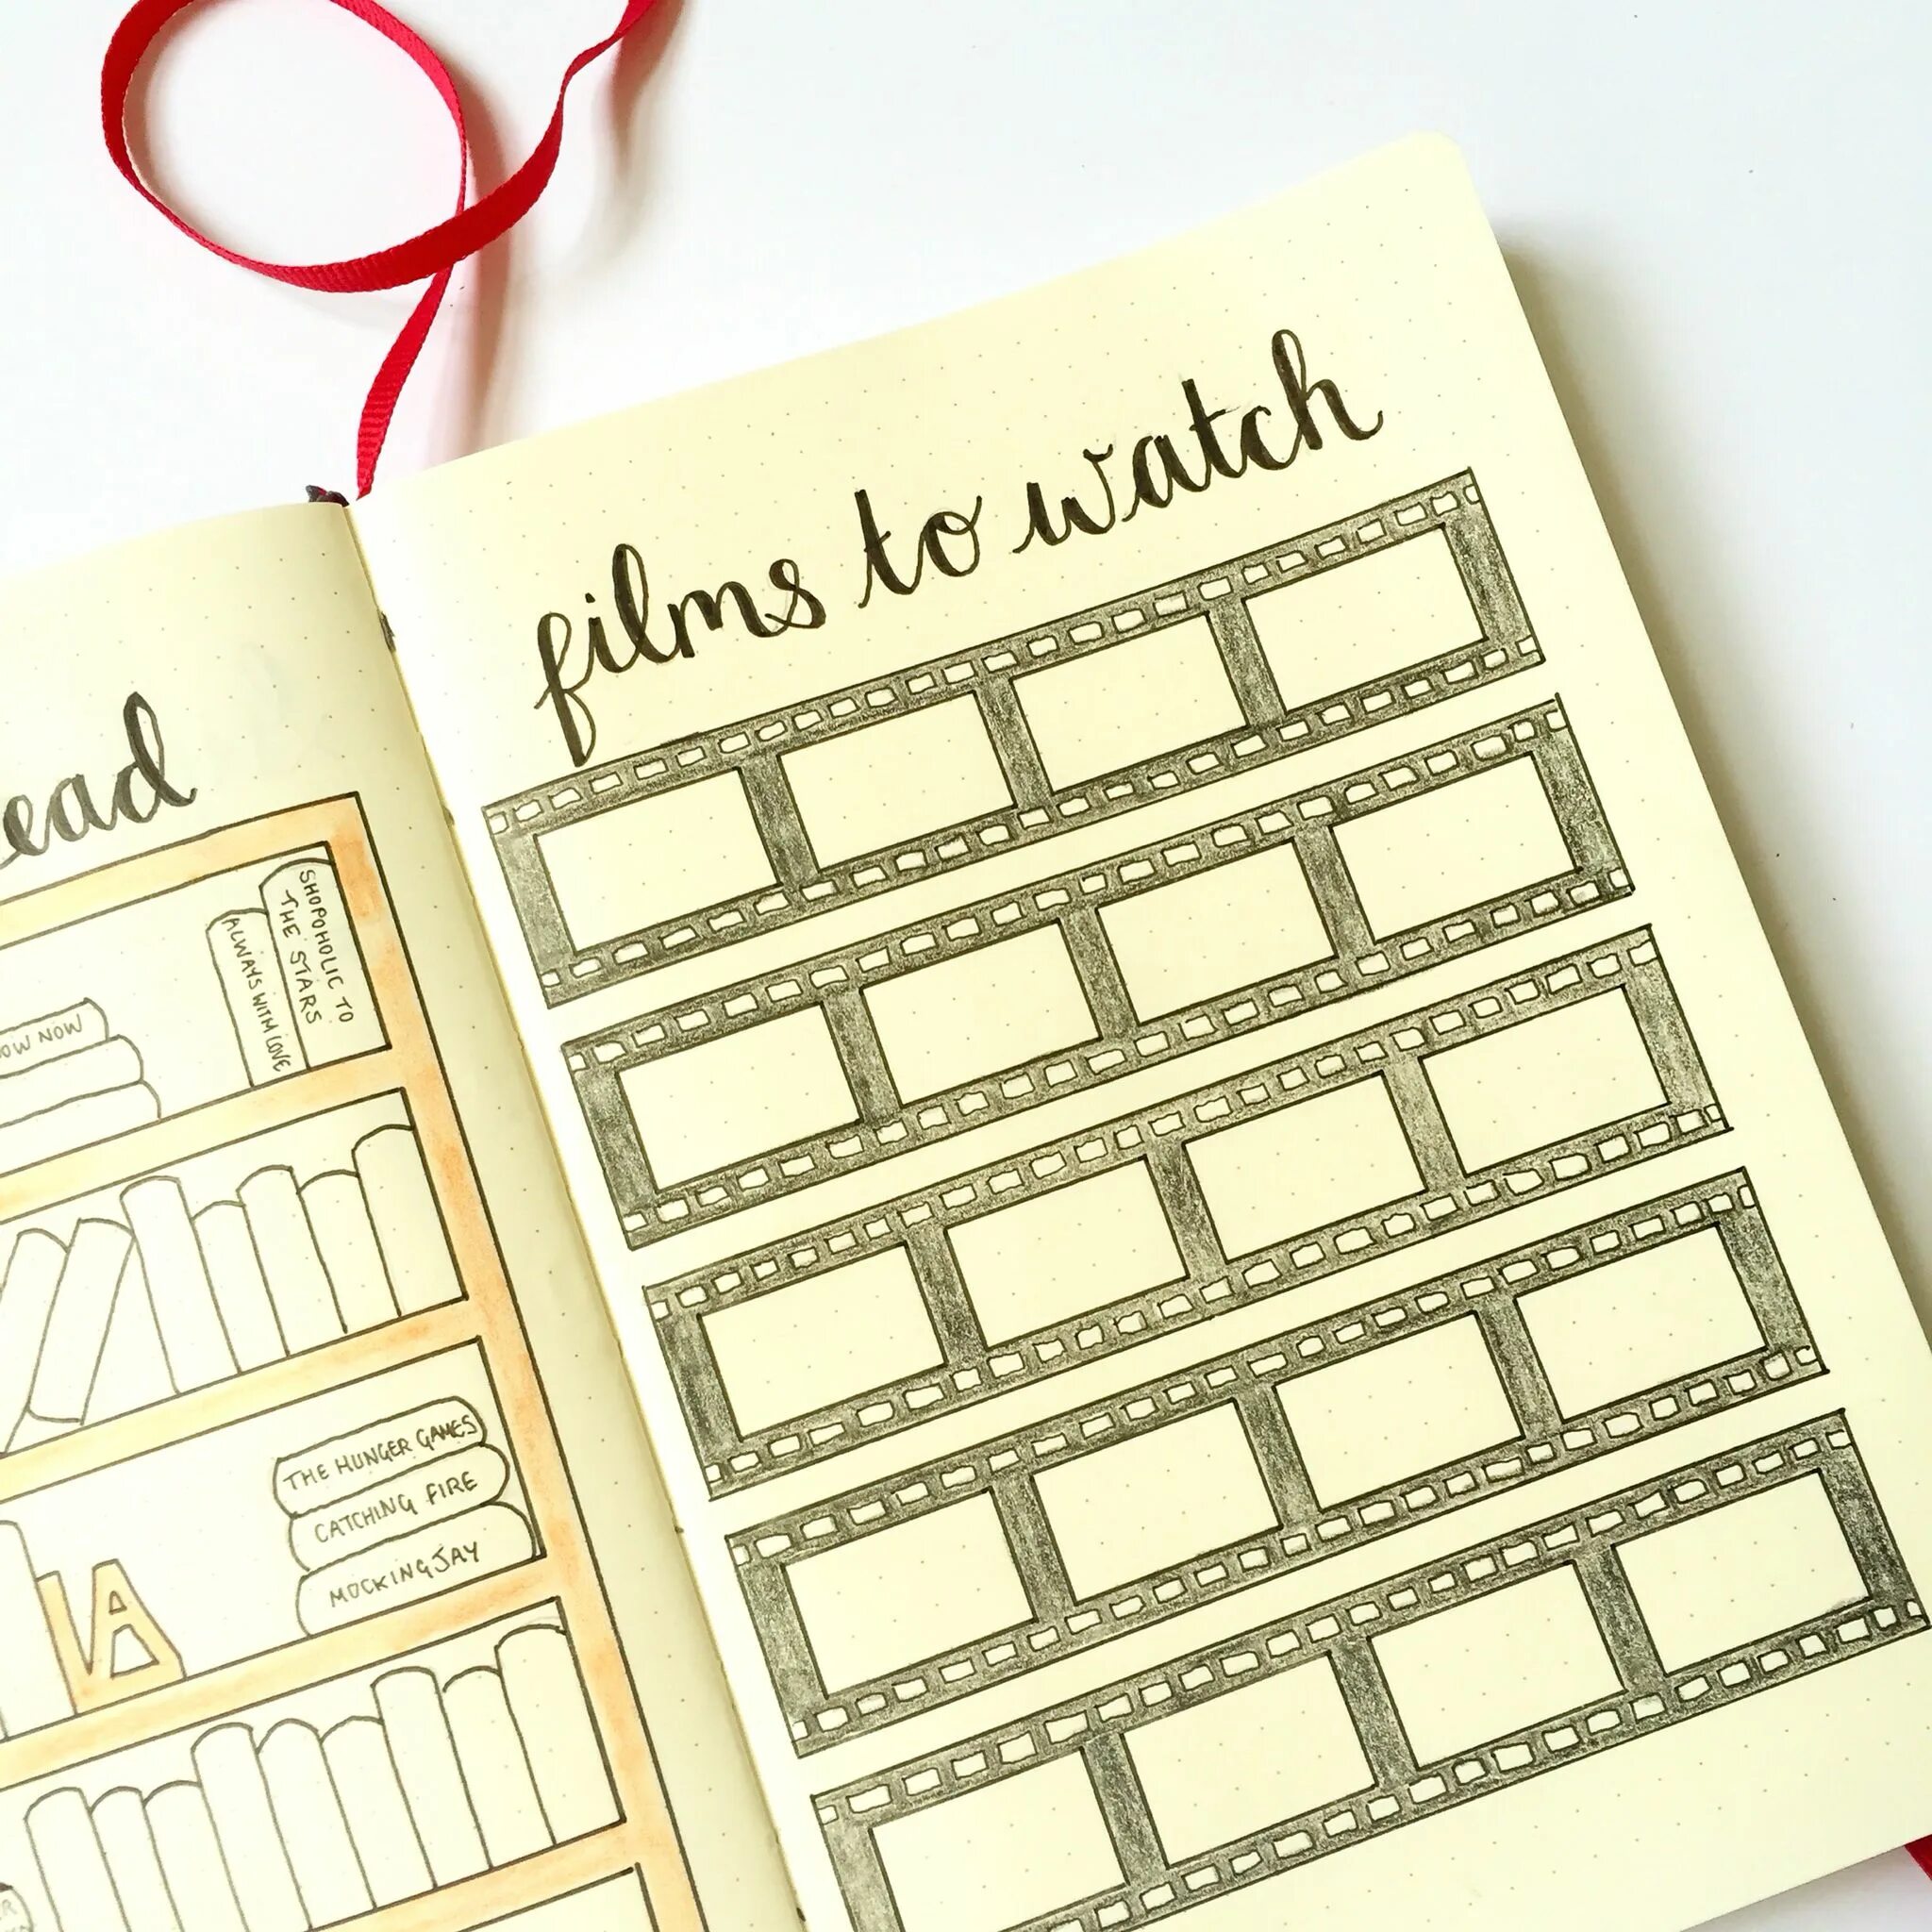 films to watch
SHOPOHOLIC TO
THE STARS
ALWAYS WITH LOVE
NOW
THE HUNGER GAMES
CATCHING FIRE
MOCKINGJAY